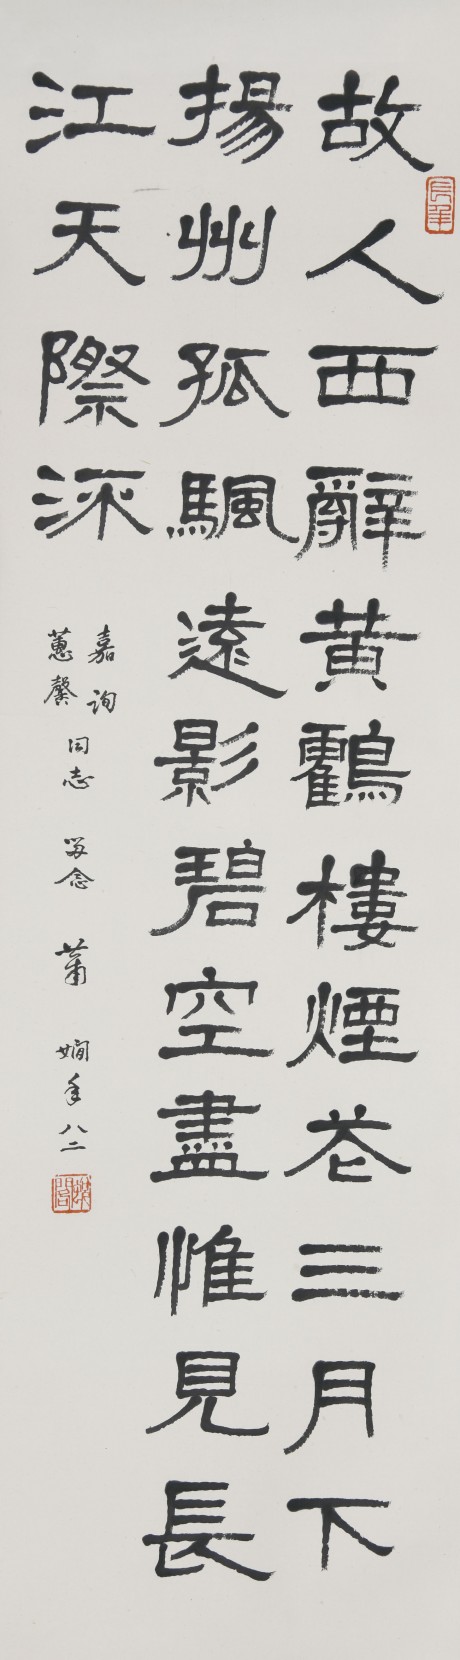 故人西辭黄鸖樓煙花三月下
揚州孤颿遠影碧空盡惟見長
江天際流
嘉詢
蕙馨
同志 留念 蕭嫻年八二
蕭嫻